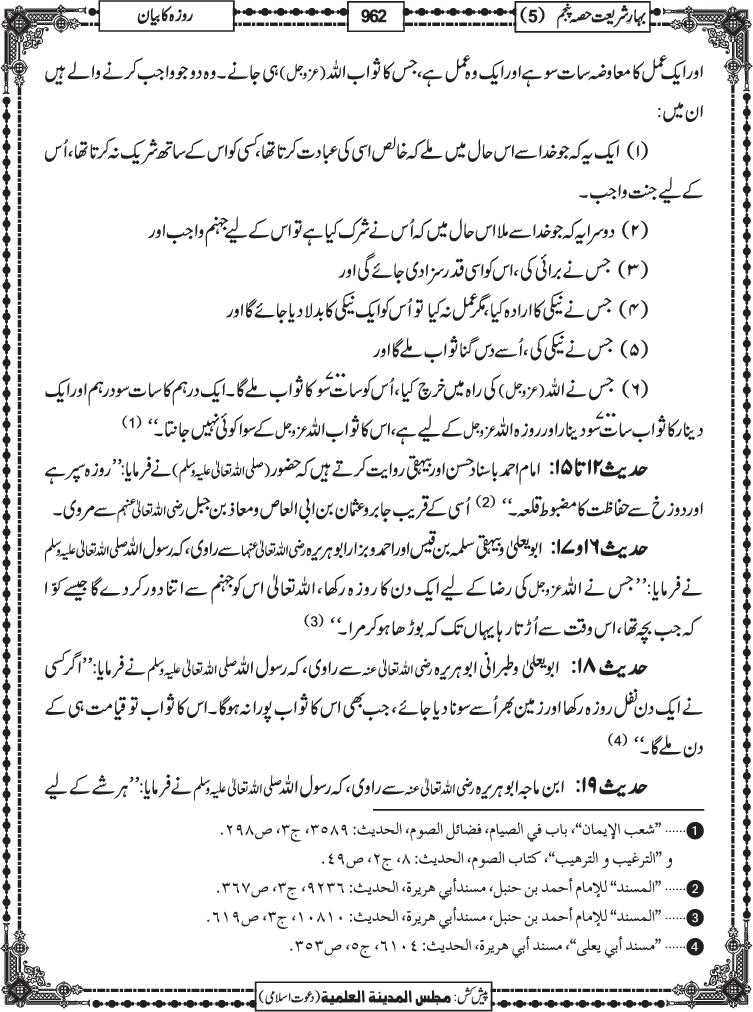 بہار شریعت حصہ پنجم (5)
962
روزہ کا بیان
اور ایک عمل کا معاوضہ سات سو ہے اور ایک وہ عمل ہے، جس کا ثواب اللہ (عزوجل) ہی جانے۔ وہ دو جو واجب کرنے والے ہیں
ان میں:
(۱) ایک یہ کہ جو خدا سے اس حال میں ملے کہ خالص اسی کی عبادت کرتا تھا، کسی کو اس کے ساتھ شریک نہ کرتا تھا، اُس
کے لیے جنت واجب۔
(۲) دوسرا یہ کہ جو خدا سے ملا اس حال میں کہ اُس نے شرک کیا ہے تو اس کے لیے جہنم واجب اور
(۳) جس نے برائی کی، اس کو اسی قدر سزا دی جائے گی اور
(۴) جس نے نیکی کا ارادہ کیا، مگر عمل نہ کیا تو اُس کو ایک نیکی کا بدلا دیا جائے گا اور
(۵) جس نے نیکی کی، اُسے دس گنا ثواب ملے گا اور
(۶) جس نے اللہ (عزوجل) کی راہ میں خرچ کیا، اُس کو سات۷۰۰ سو کا ثواب ملے گا۔ ایک درہم کا سات سو درہم اور ایک
دینار کا ثواب سات۷۰۰ سو دینار اور روزہ اللہ عزوجل کے لیے ہے، اس کا ثواب اللہ عزوجل کے سوا کوئی نہیں جانتا۔‘‘ (1)
حدیث ۱۲ تا ۱۵: امام احمد باسناد حسن اور بیہقی روایت کرتے ہیں کہ حضور (صلی اللہ تعالیٰ علیہ وسلم) نے فرمایا: ’’روزہ سپر ہے
اور دوزخ سے حفاظت کا مضبوط قلعہ۔‘‘ (2) اُسی کے قریب جابر و عثمان بن ابی العاص و معاذ بن جبل رضی اللہ تعالیٰ عنہم سے مروی۔
حدیث ۱۶ و ۱۷: ابو یعلیٰ و بیہقی سلمہ بن قیس اور احمد و بزار ابو ہریرہ رضی اللہ تعالیٰ عنہما سے راوی، کہ رسول اللہ صلی اللہ تعالیٰ علیہ وسلم
نے فرمایا: ’’جس نے اللہ عزوجل کی رضا کے لیے ایک دن کا روزہ رکھا، اللہ تعالیٰ اس کو جہنم سے اتنا دور کر دے گا جیسے کوّا
کہ جب بچہ تھا، اس وقت سے اُڑتا رہا یہاں تک کہ بوڑھا ہو کر مرا۔‘‘ (3)
حدیث ۱۸: ابو یعلیٰ و طبرانی ابو ہریرہ رضی اللہ تعالیٰ عنہ سے راوی، کہ رسول اللہ صلی اللہ تعالیٰ علیہ وسلم نے فرمایا: ’’اگر کسی
نے ایک دن نفل روزہ رکھا اور زمین بھر اُسے سونا دیا جائے، جب بھی اس کا ثواب پورا نہ ہوگا۔ اس کا ثواب تو قیامت ہی کے
دن ملے گا۔‘‘ (4)
حدیث ۱۹: ابن ماجہ ابو ہریرہ رضی اللہ تعالیٰ عنہ سے راوی، کہ رسول اللہ صلی اللہ تعالیٰ علیہ وسلم نے فرمایا: ’’ہر شے کے لیے
1 ...... ”شعب الإيمان“، باب في الصيام، فضائل الصوم، الحديث: ۳۵۸۹، ج۳، ص۲۹۸.
و ”الترغيب و الترهيب“، كتاب الصوم، الحديث: ۸، ج۲، ص۴۹.
2 ...... ”المسند“ للإمام أحمد بن حنبل، مسند أبي هريرة، الحديث: ۹۲۳۶، ج۳، ص۳۶۷.
3 ...... ”المسند“ للإمام أحمد بن حنبل، مسند أبي هريرة، الحديث: ۱۰۸۱۰، ج۳، ص۶۱۹.
4 ...... ”مسند أبي يعلى“، مسند أبي هريرة، الحديث: ۶۱۰۴، ج۵، ص۳۵۳.
پیش کش: مجلس المدینة العلمیة (دعوت اسلامی)